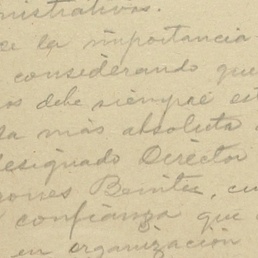 nistrativas.
ce la importancia
considerando que
os debe siempre est
sa más absoluta
designado Director
rones Benitez, cu
confianza que
en organización